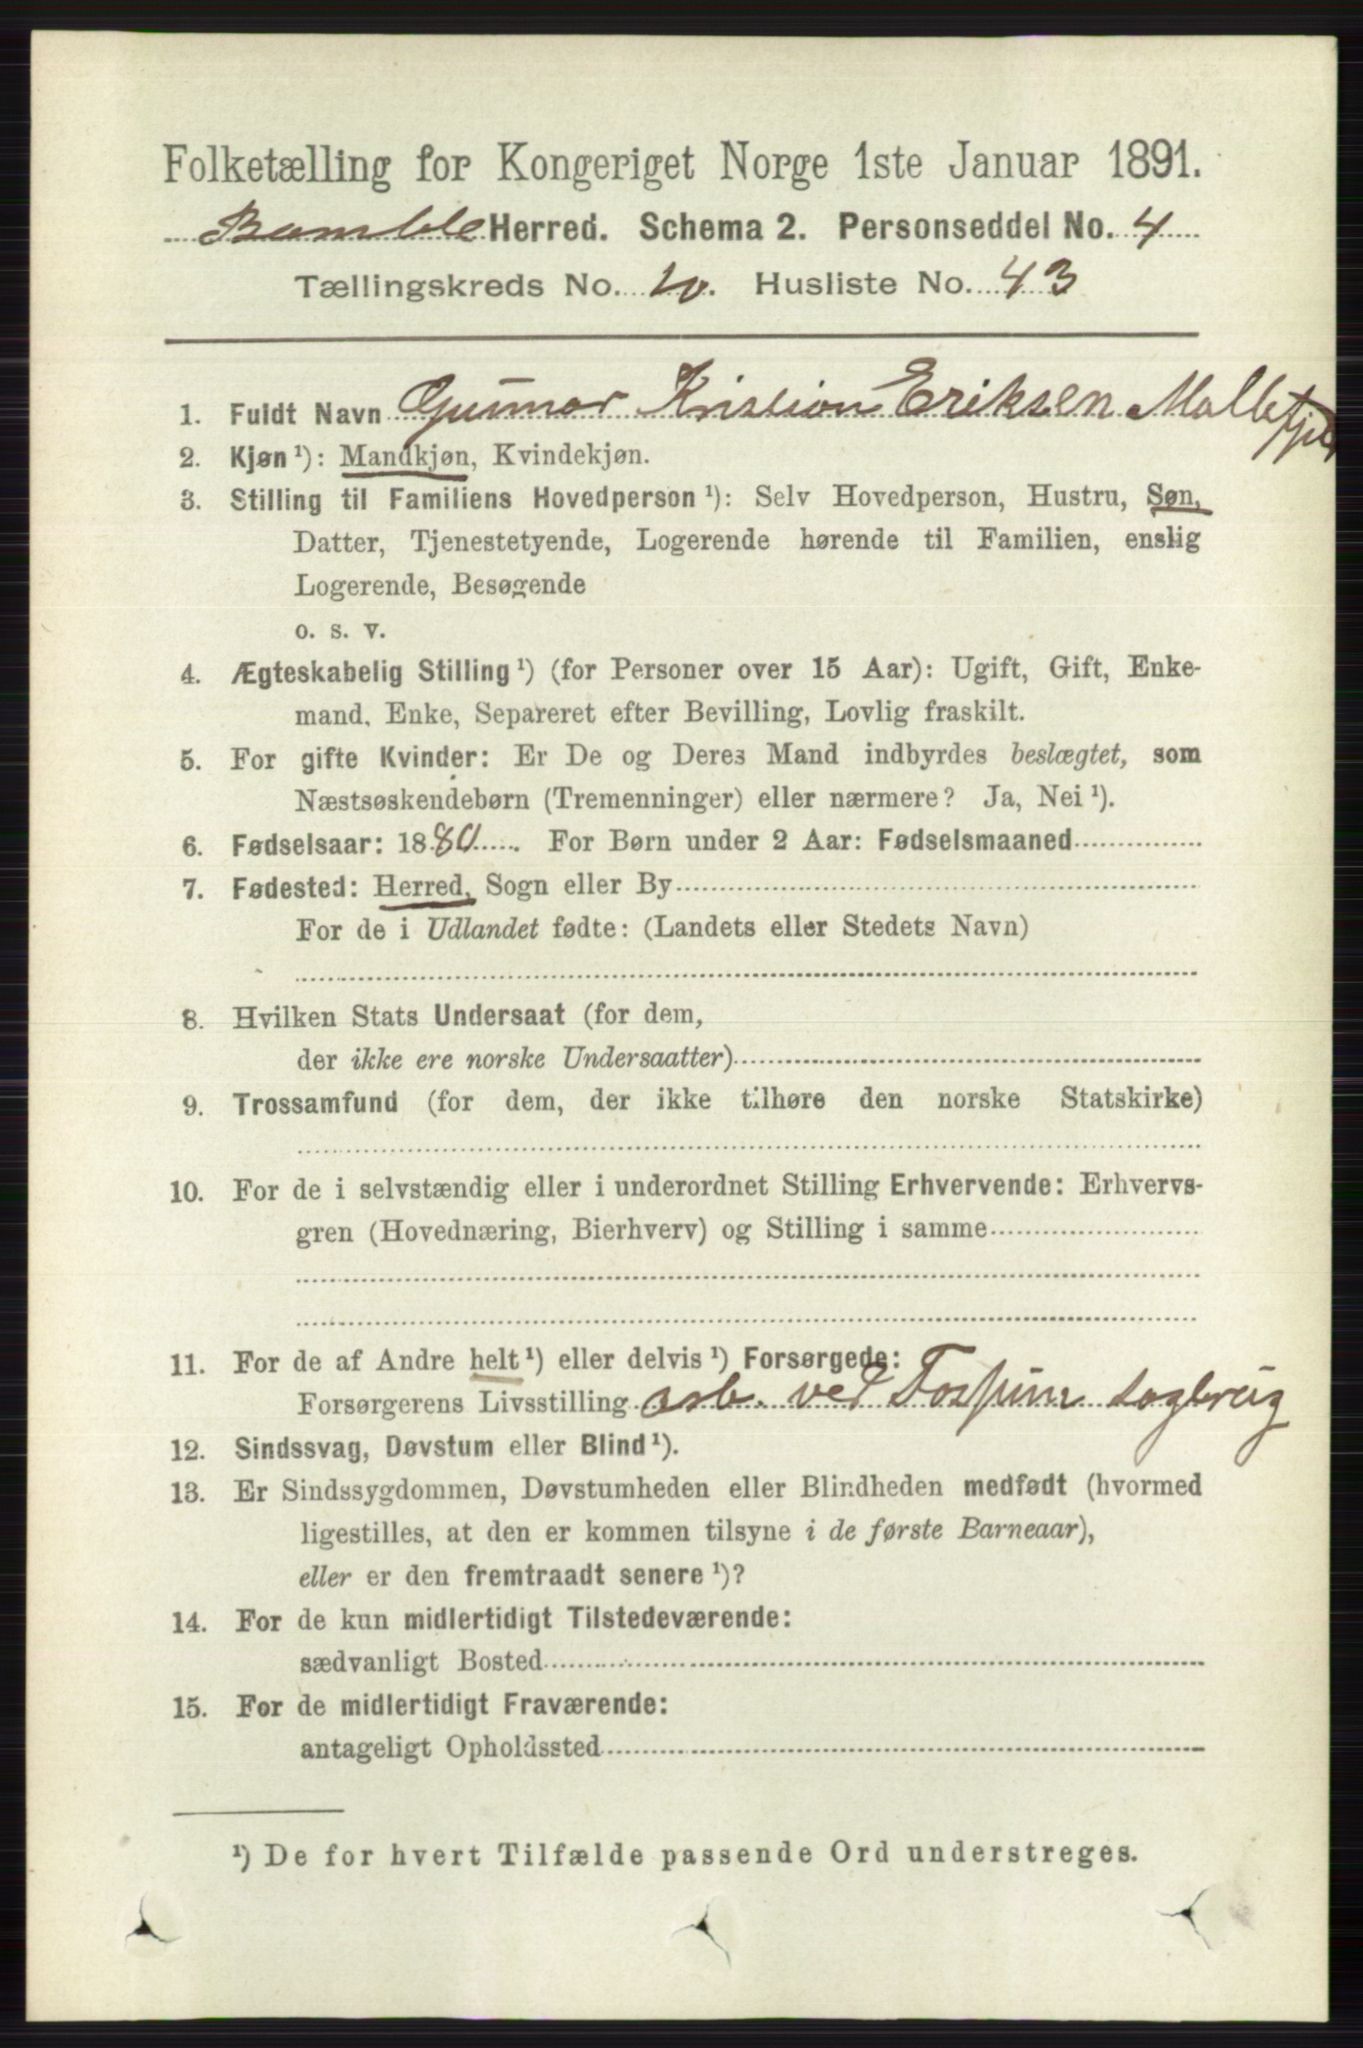 Folketælling for Kongeriget Norge 1ste Januar 1891.
Bamble Herred. Schema 2. Personseddel No. 4
Tællingskreds No. 10. Husliste No. 43
1. Fuldt Navn Gunnar Kristian Eriksen
2. Kjøn ¹): Mandkjøn, Kvindekjøn.
3. Stilling til Familiens Hovedperson ¹): Selv Hovedperson, Hustru, Søn,
Datter, Tjenestetyende, Logerende hørende til Familien, enslig
Logerende, Besøgende
o. s. v.
4. Ægteskabelig Stilling ¹) (for Personer over 15 Aar): Ugift, Gift, Enke-
mand, Enke, Separeret efter Bevilling, Lovlig fraskilt.
5. For gifte Kvinder: Er De og Deres Mand indbyrdes beslægtet, som
Næstsøskendebørn (Tremenninger) eller nærmere? Ja, Nei ¹).
6. Fødselsaar: 1880. For Børn under 2 Aar: Fødselsmaaned
7. Fødested: Herred, Sogn eller By
For de i Udlandet fødte: (Landets eller Stedets Navn)
8. Hvilken Stats Undersaat (for dem,
der ikke ere norske Undersaatter)
9. Trossamfund (for dem, der ikke tilhøre den norske Statskirke)
10. For de i selvstændig eller i underordnet Stilling Erhvervende: Erhvervs-
gren (Hovednæring, Bierhverv) og Stilling i samme
11. For de af Andre helt ¹) eller delvis ¹) Forsørgede:
Forsørgerens Livsstilling arb. ved sagbrug
12. Sindssvag, Døvstum eller Blind ¹).
13. Er Sindssygdommen, Døvstumheden eller Blindheden medfødt (hvormed
ligestilles, at den er kommen tilsyne i de første Barneaar),
eller er den fremtraadt senere ¹)?
14. For de kun midlertidigt Tilstedeværende:
sædvanligt Bosted
15. For de midlertidigt Fraværende:
antageligt Opholdssted
¹) De for hvert Tilfælde passende Ord understreges.